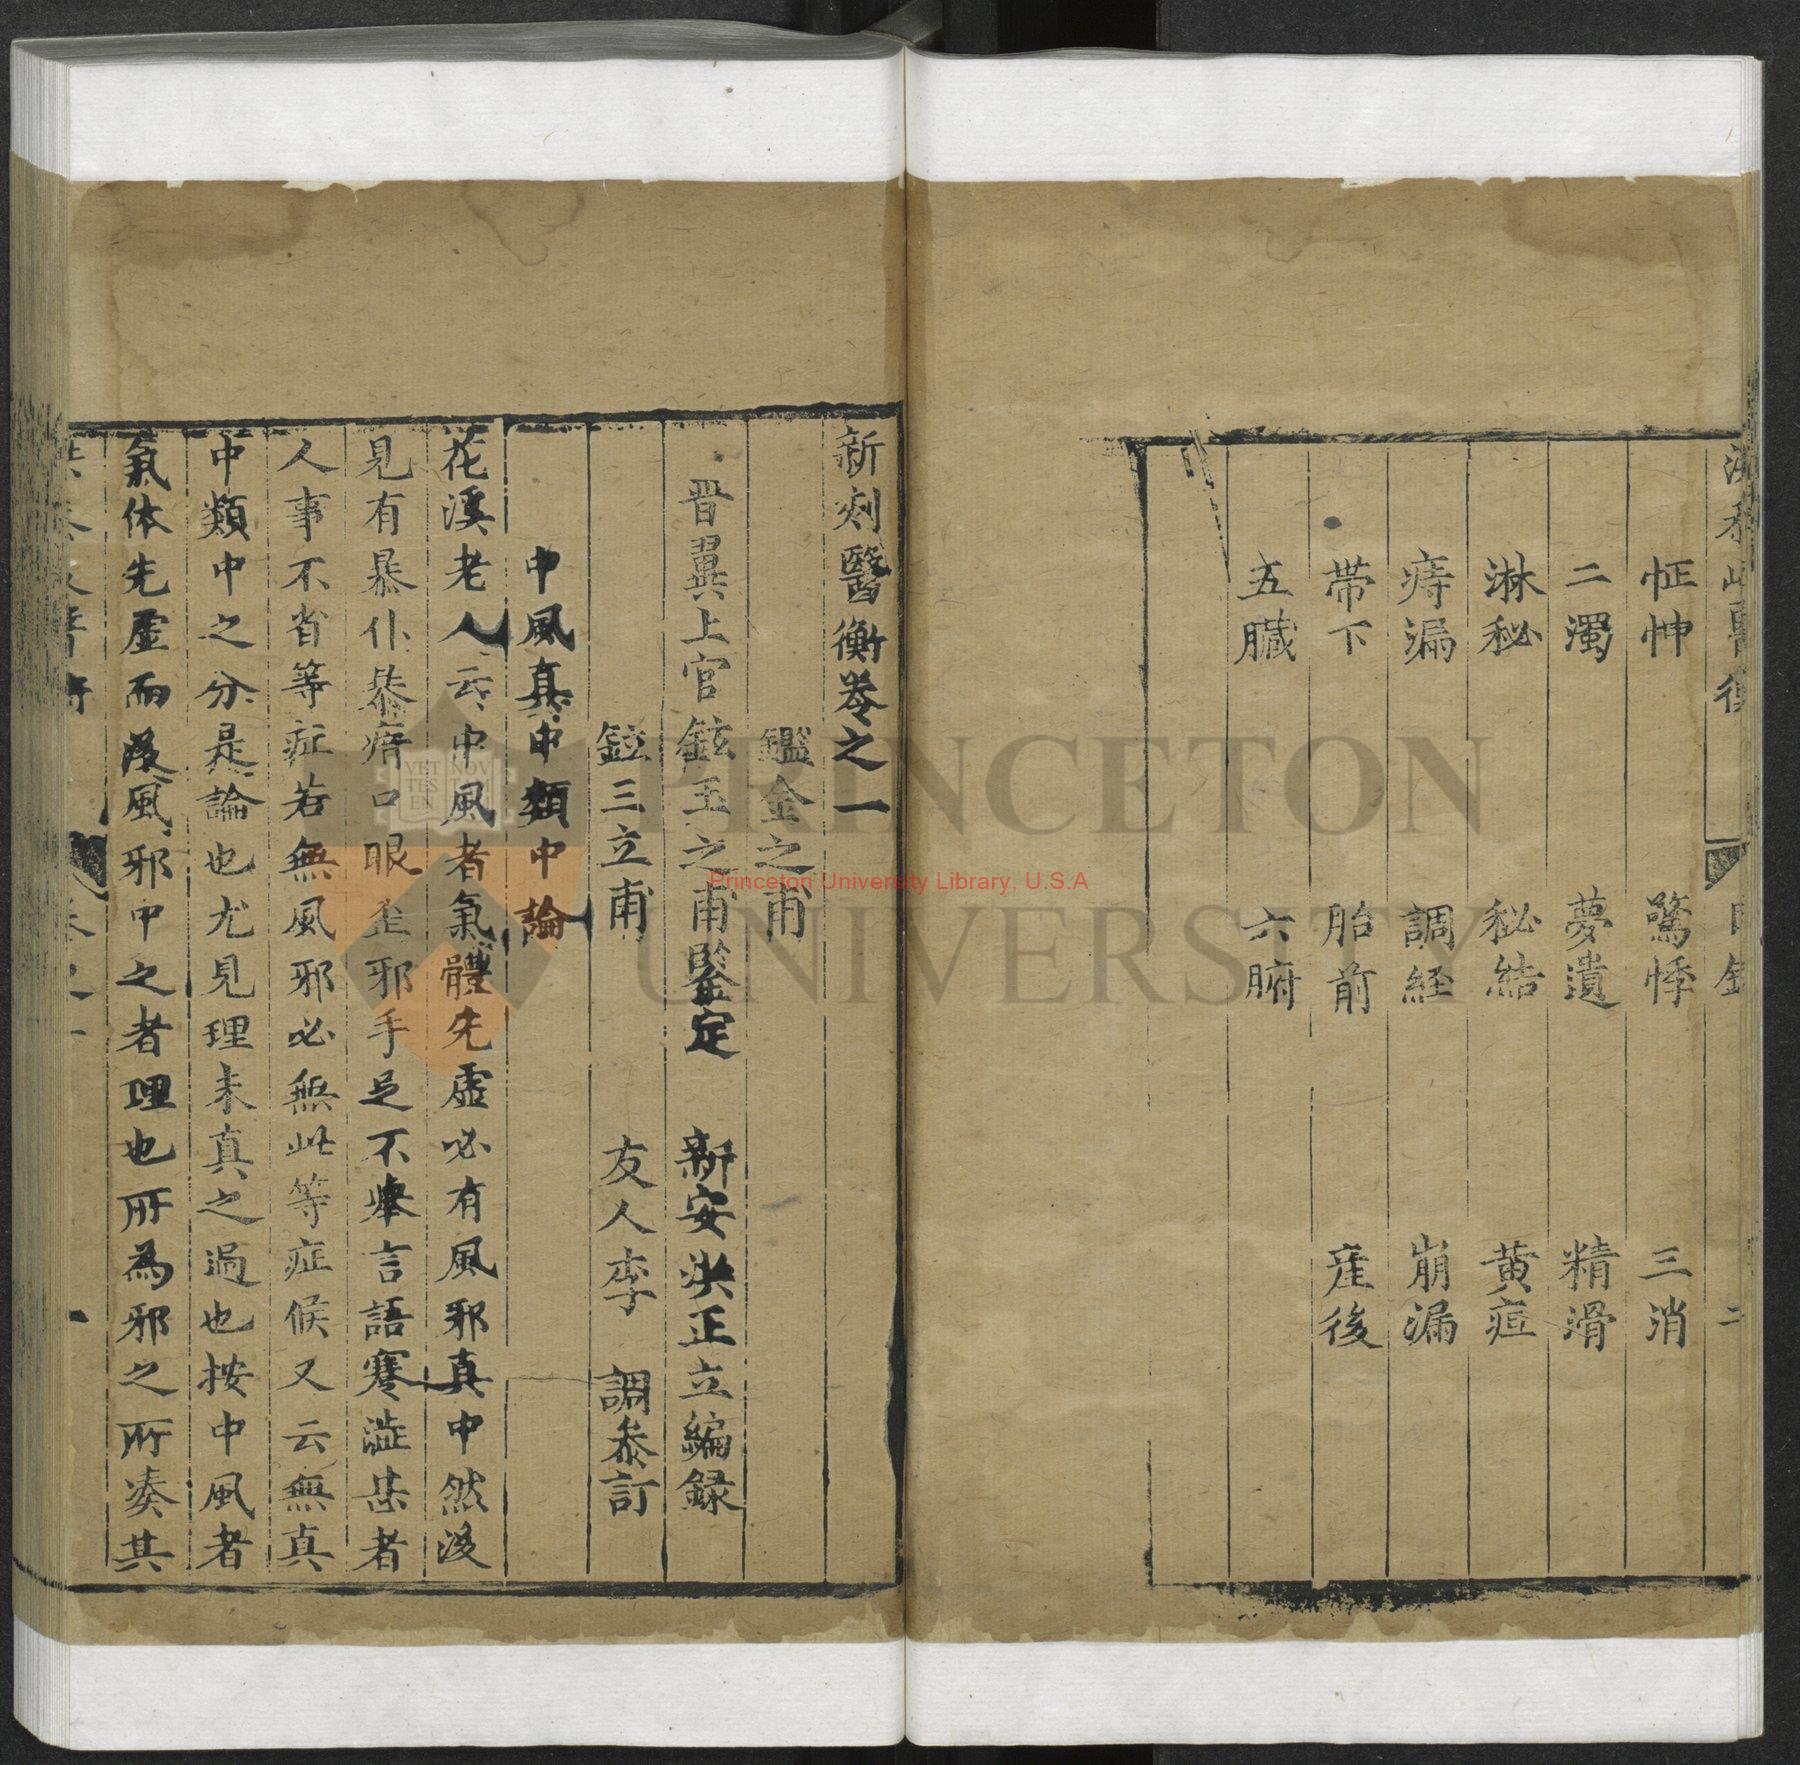 怔忡 驚悸 三消
二濁 夢遺 精滑
淋秘 秘結 黄疸
痔漏 調經 崩漏
帶下 胎前 產後
五臟 六腑
新刻醫衡卷之一
鑑金之甫
晋翼上官鉉玉之甫鑒定 新安洪正立編録
鉝三立甫 友人李 調叅訂
中風真中類中論
花溪老人云中風者氣體先虛必有風邪真中然後
見有暴仆暴瘖口眼歪邪手足不舉言語蹇澁某者
人事不省等症若無風邪必無此等症候又云無真
中類中之分是論也尤見理未真之過也按中風者
氣体先虛而後風邪中之者理也所為邪之所凑其
PRINCETON
UNIVERSITY
VET NOV
TES
EN
Princeton University Library, U.S.A